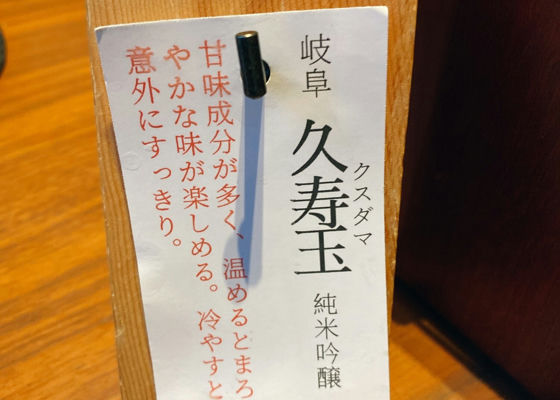 岐阜
久寿玉
クスダマ
純米吟醸
甘味成分が多く、温めるとまろ
やかな味が楽しめる。冷やすと
意外にすっきり。